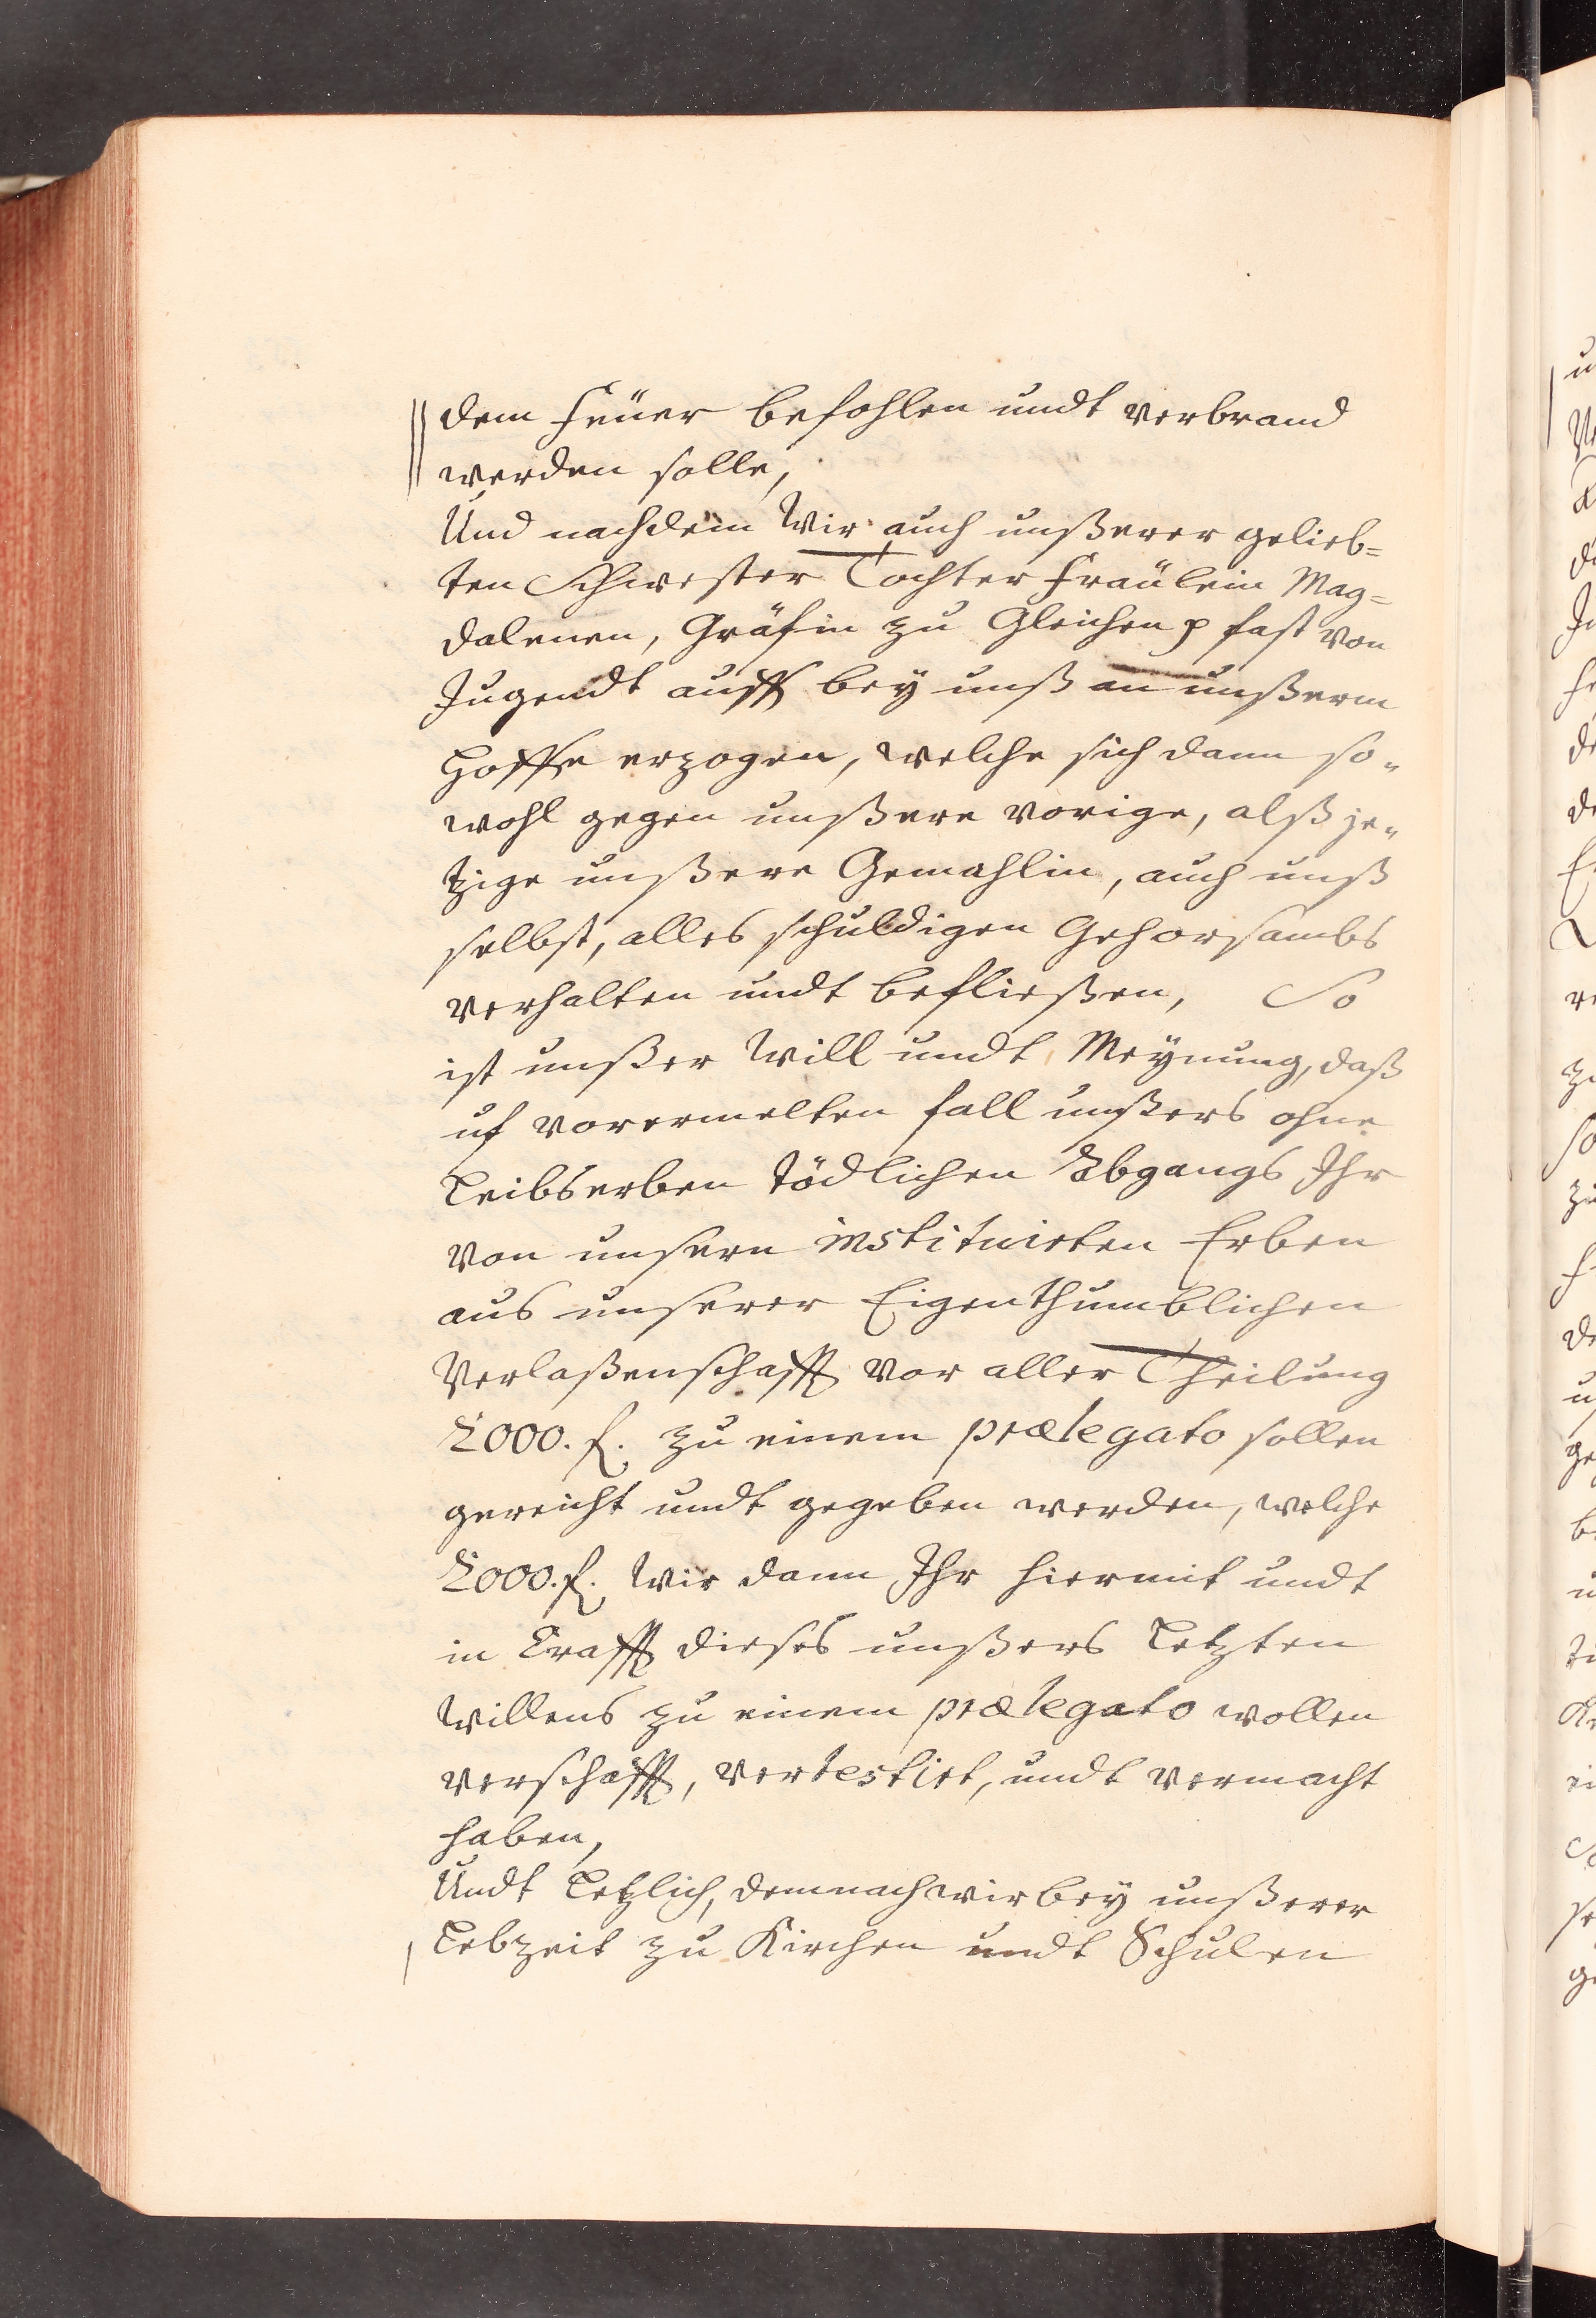 dem feüer befohlen undt verbrand
werden solle,
Und nachdem Wir auch unßerer gelieb=
ten Schwester Tochter Fraülein Mag=
dalenen, Gräfin zu Gleichen p fast von
Jugendt auff bey unß an unßerm
Hoffe erzogen, welche sich dann so„
wohl gegen unßere vorige, alß je„
tzige unßere Gemahlin, auch unß
selbst, alles schuldigen Gehorsambs
verhalten undt befließen, So
ist unßer Will undt Meynung, daß
uf vorermelten fall unßers ohne
Leibserben tödlichen Abgangs Ihr
von unsern instituirten Erben
aus unserer Eigenthumblichen
Verlaßenschafft vor aller Theilung
2000. f. zu einem prælegato sollen
gereicht undt gegeben werden, welche
2000. f. Wir dann Ihr hiermit undt
in Krafft dieses unßers Letzten
Willens zu einem prælegato wollen
verschafft, vertestirt, undt vermacht
haben,
Undt Letzlich, demnach wir bey unßerer
Lebzeit zu Kirchen undt Schulen